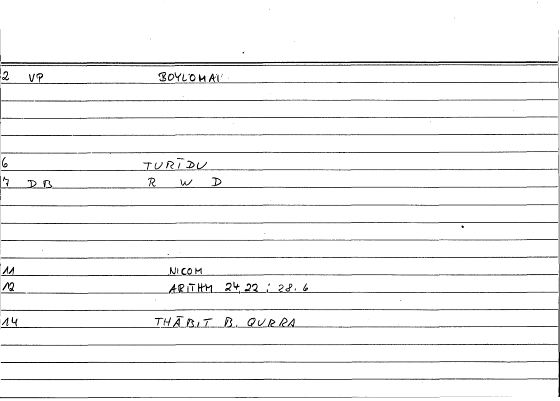 2 VP BOYLOMAI
6 TURĪDU
7 DB R W D
11 NICOM
12 ARITHM 24,22 ; 28.6
14 THĀBIT B. QURRA